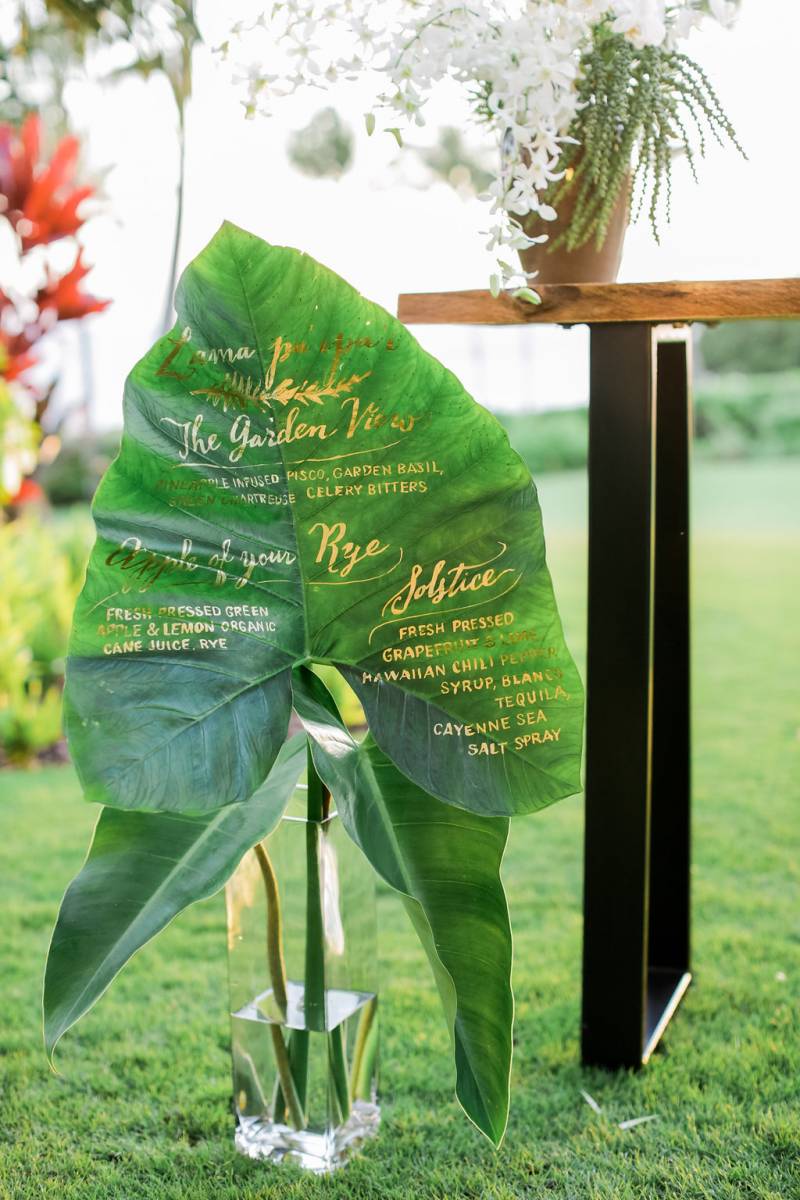 Lama pū'ipu'i
The Garden View
PINEAPPLE INFUSED PISCO, GARDEN BASIL,
GREEN CHARTREUSE CELERY BITTERS
Apple of your Rye
FRESH PRESSED GREEN
APPLE & LEMON ORGANIC
CANE JUICE, RYE
Solstice
FRESH PRESSED
GRAPEFRUIT & LIME,
HAWAIIAN CHILI PEPPER
SYRUP, BLANCO
TEQUILA,
CAYENNE SEA
SALT SPRAY